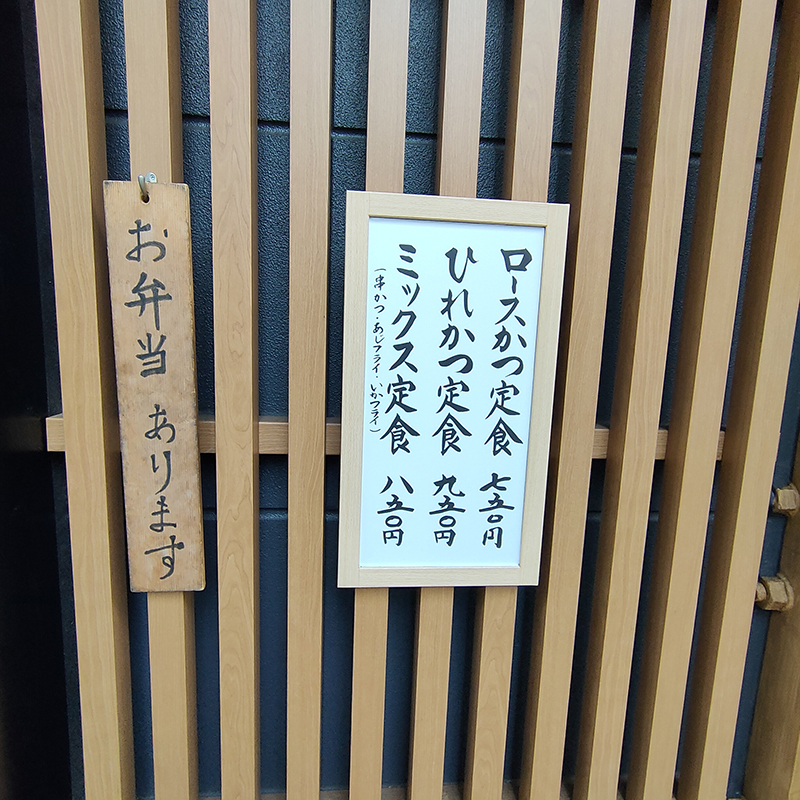 ロースかつ定食 七五〇円
ひれかつ定食 九五〇円
ミックス定食 八五〇円
(串かつ・あじフライ・いかフライ)
お弁当 あります